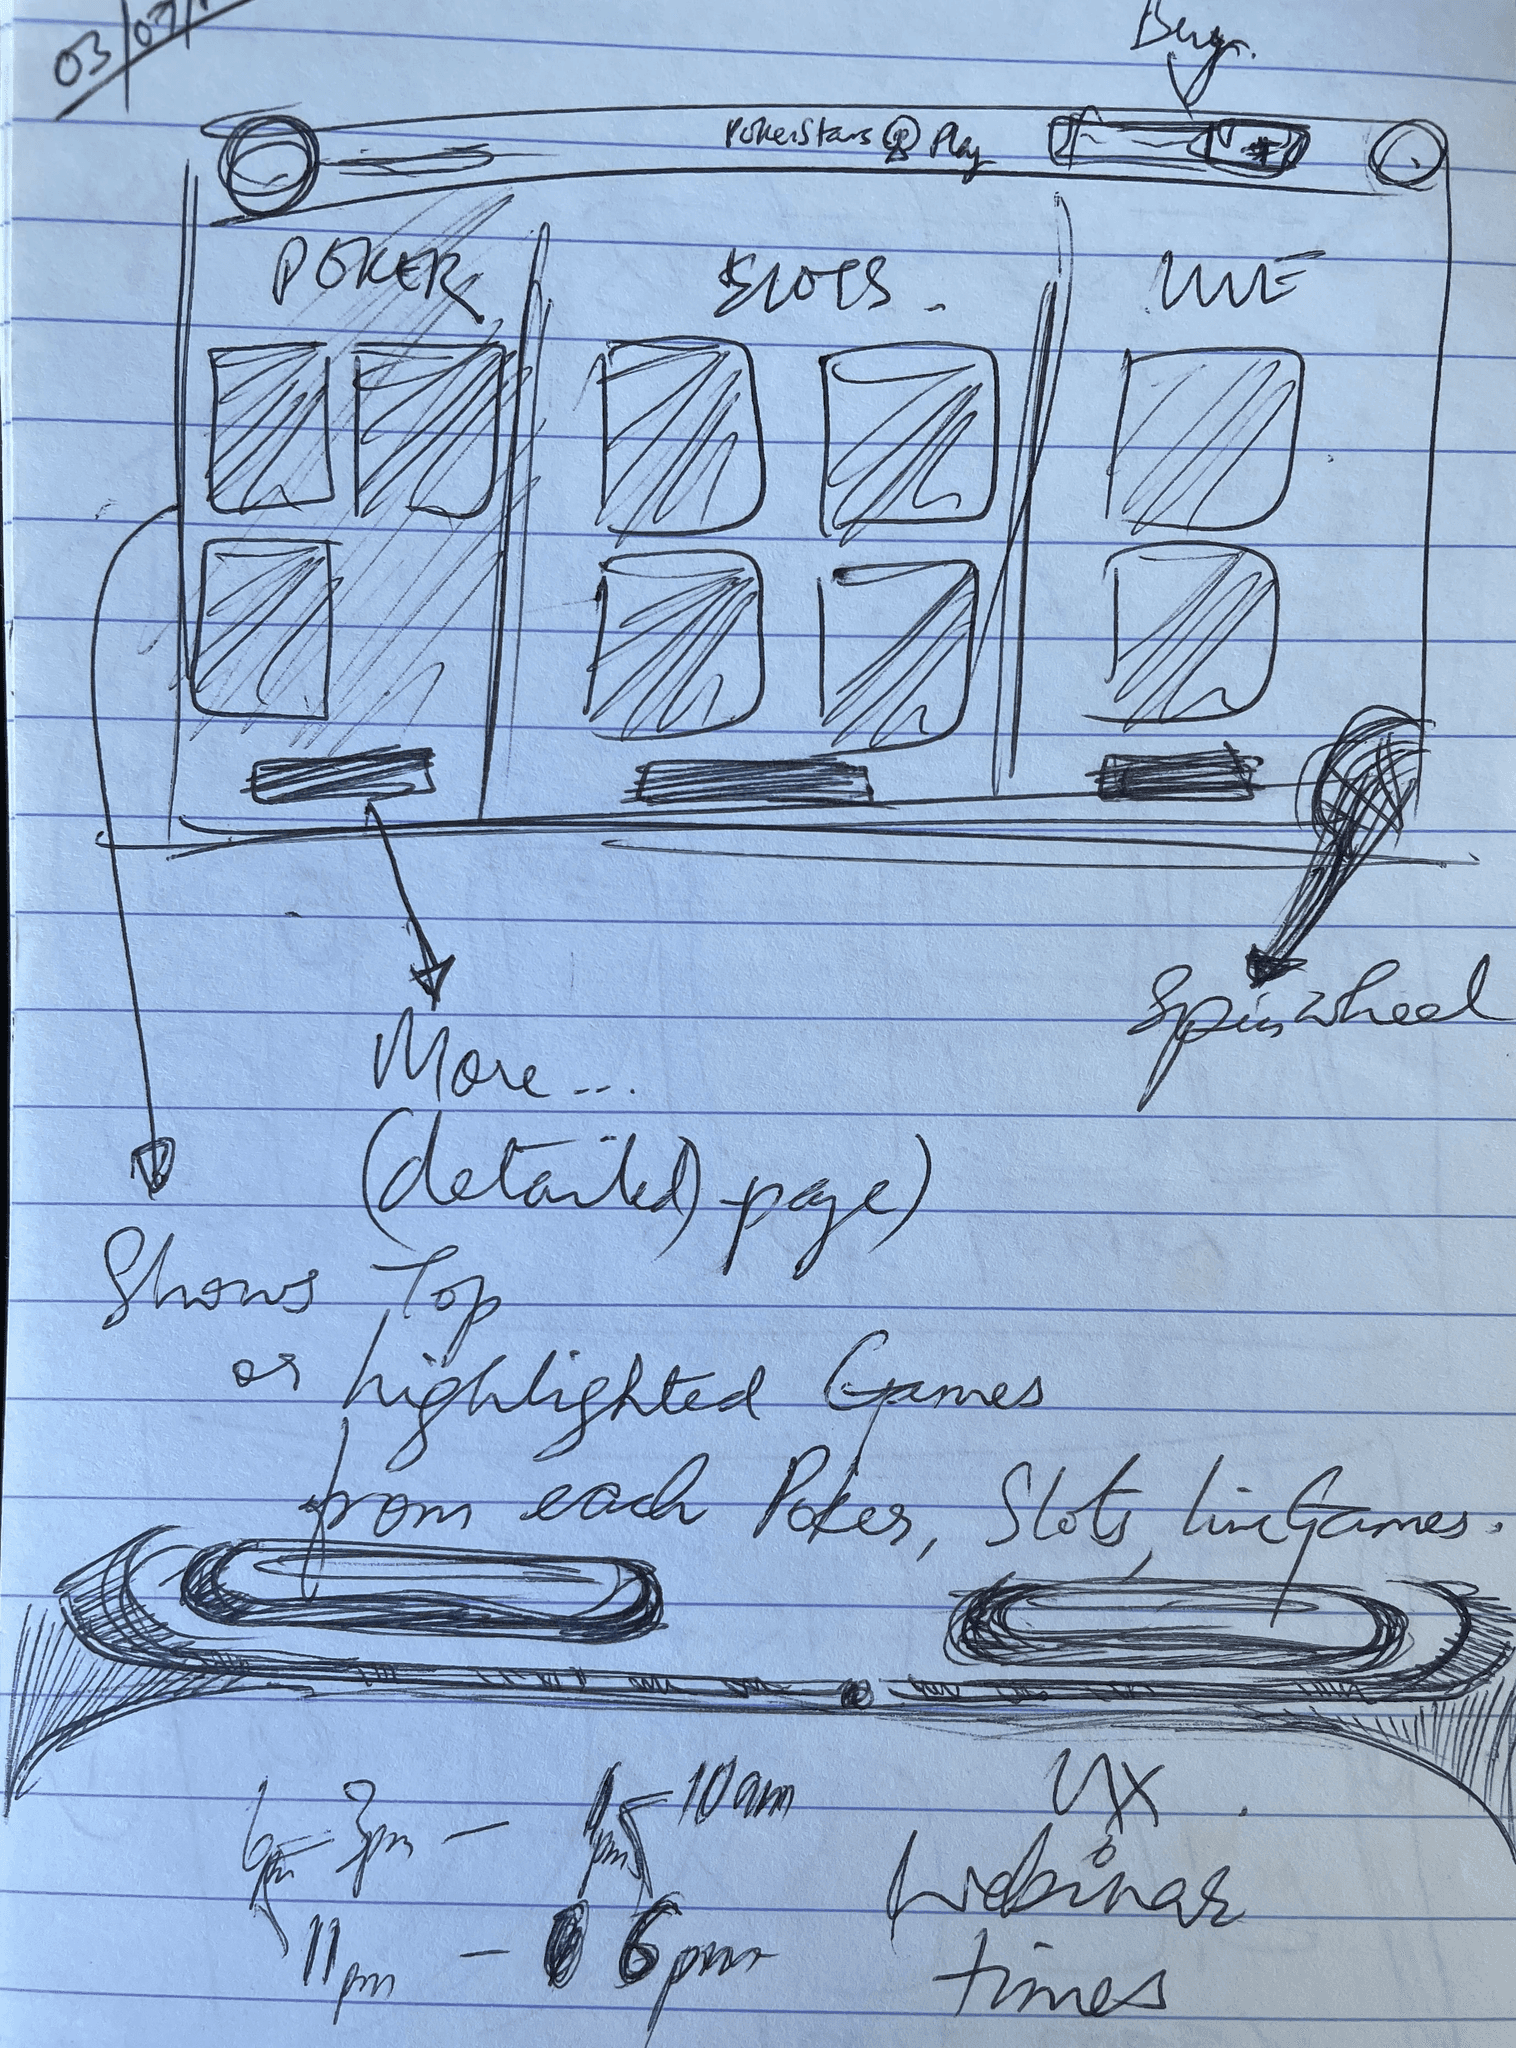 03/07/
PokerStars Play
POKER SLOTS LIVE
Spin wheel
More...
(detailed) page)
Shows Top
or highlighted Games
from each Poker, Slots, live Games.
6pm - 3pm - 10am
11pm - 6pm
UX
Webinar
times